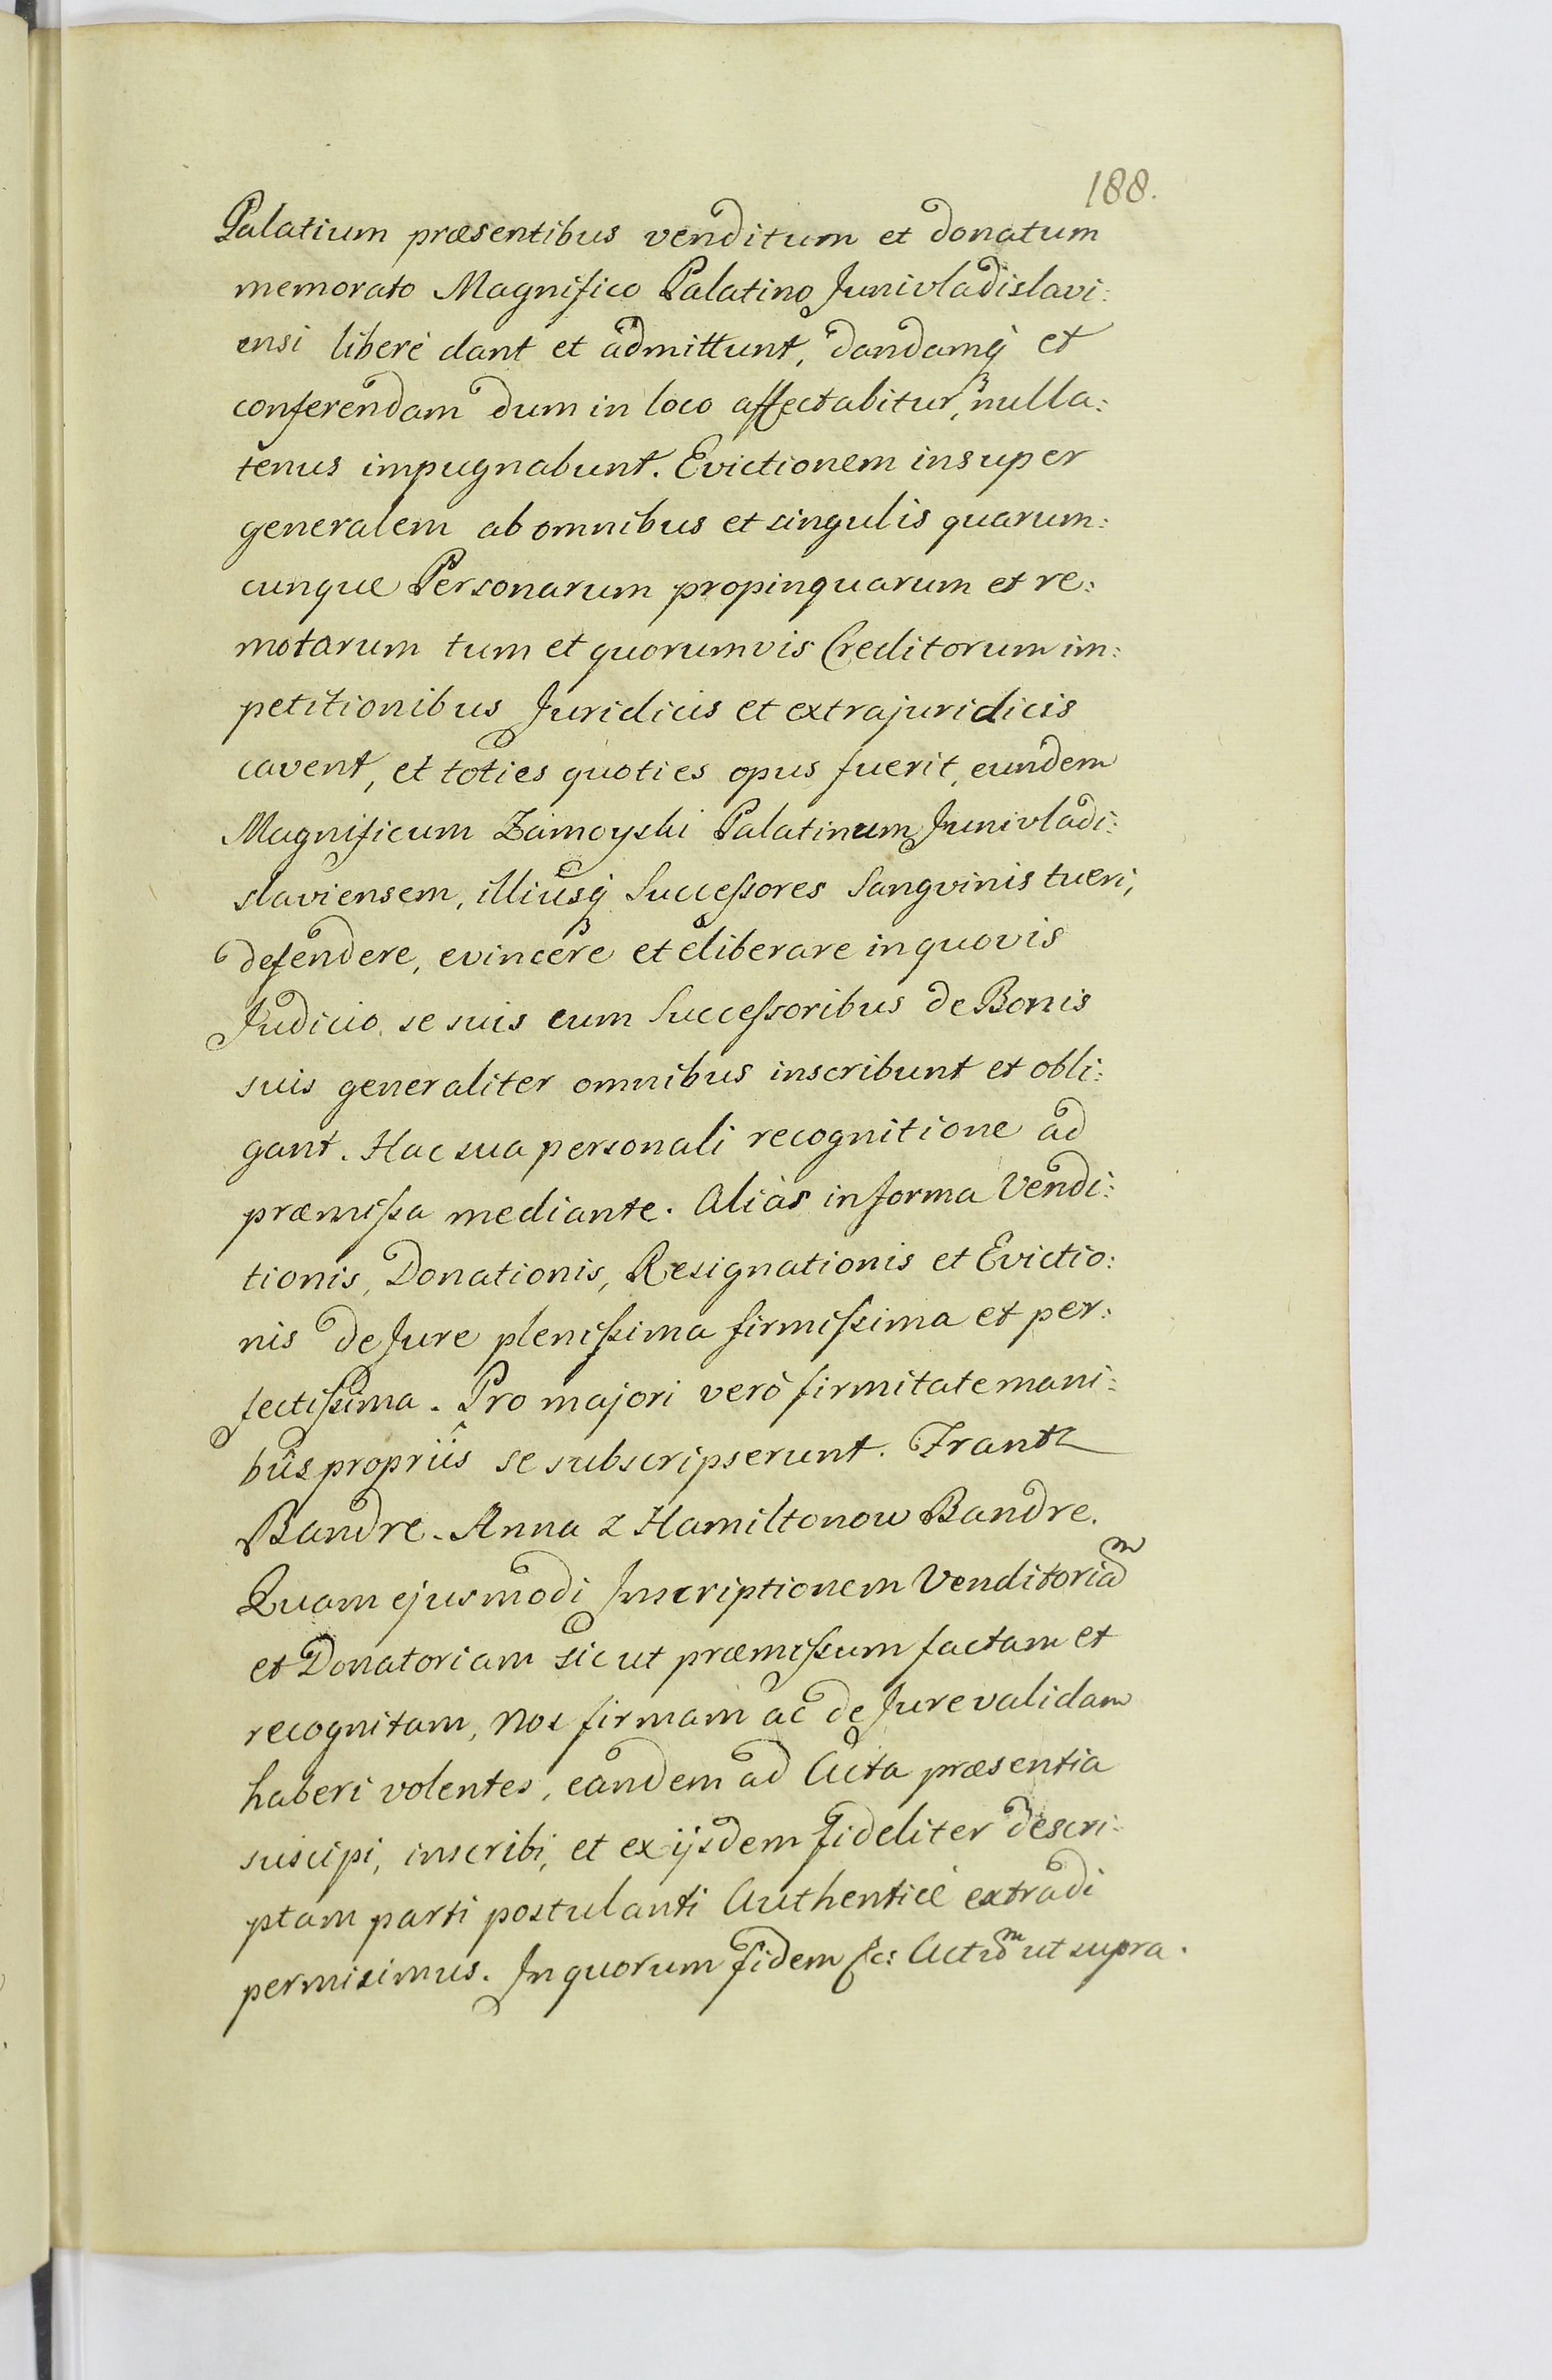 188.
Palatium præsentibus venditum et donatum
memorato Magnifico Palatino Junivladislavi:
ensi liberè dant et admittunt, dandamq́ et
conferendam dum in loco affectabitur, nulla:
tenus impugnabunt. Evictionem insuper
generalem ab omnibus et singulis quarum:
cunque Personarum propinquarum et re:
motarum tum et quorumvis Creditorum im:
petitionibus Juridicis et extrajuridicis
cavent, et toties quoties opus fuerit, eundem
Magnificum Zamoyski Palatinum Junivladi:
slaviensem, illiusq́ Successores Sangvinis tueri,
defendere, evincere et eliberare in quovis
Judicio se suis cum Successoribus de Bonis
suis generaliter omnibus inscribunt et obli:
gant. Hac sua personali recognitione ad
præmissa mediante. Aliàs in forma Vendi:
tionis, Donationis, Resignationis et Evictio:
nis de Jure plenissima firmissima et per:
fectissima. Pro majori verò firmitate mani:
bûs propriîs se subscripserunt. Frantz
Bandre. Anna z Hamiltonow Bandre.
Quam ejusmodi Inscriptionem Venditoriaᵐ
et Donatoriam sic ut præmissum factam et
recognitam, Nos firmam ac de Jure validam
haberi volentes, eandem ad Acta præsentia
suscipi, inscribi, et ex ijsdem fideliter descri:
ptam parti postulanti Authenticè extradi
permisimus. In quorum fidem &c: Actuᵐ ut supra.